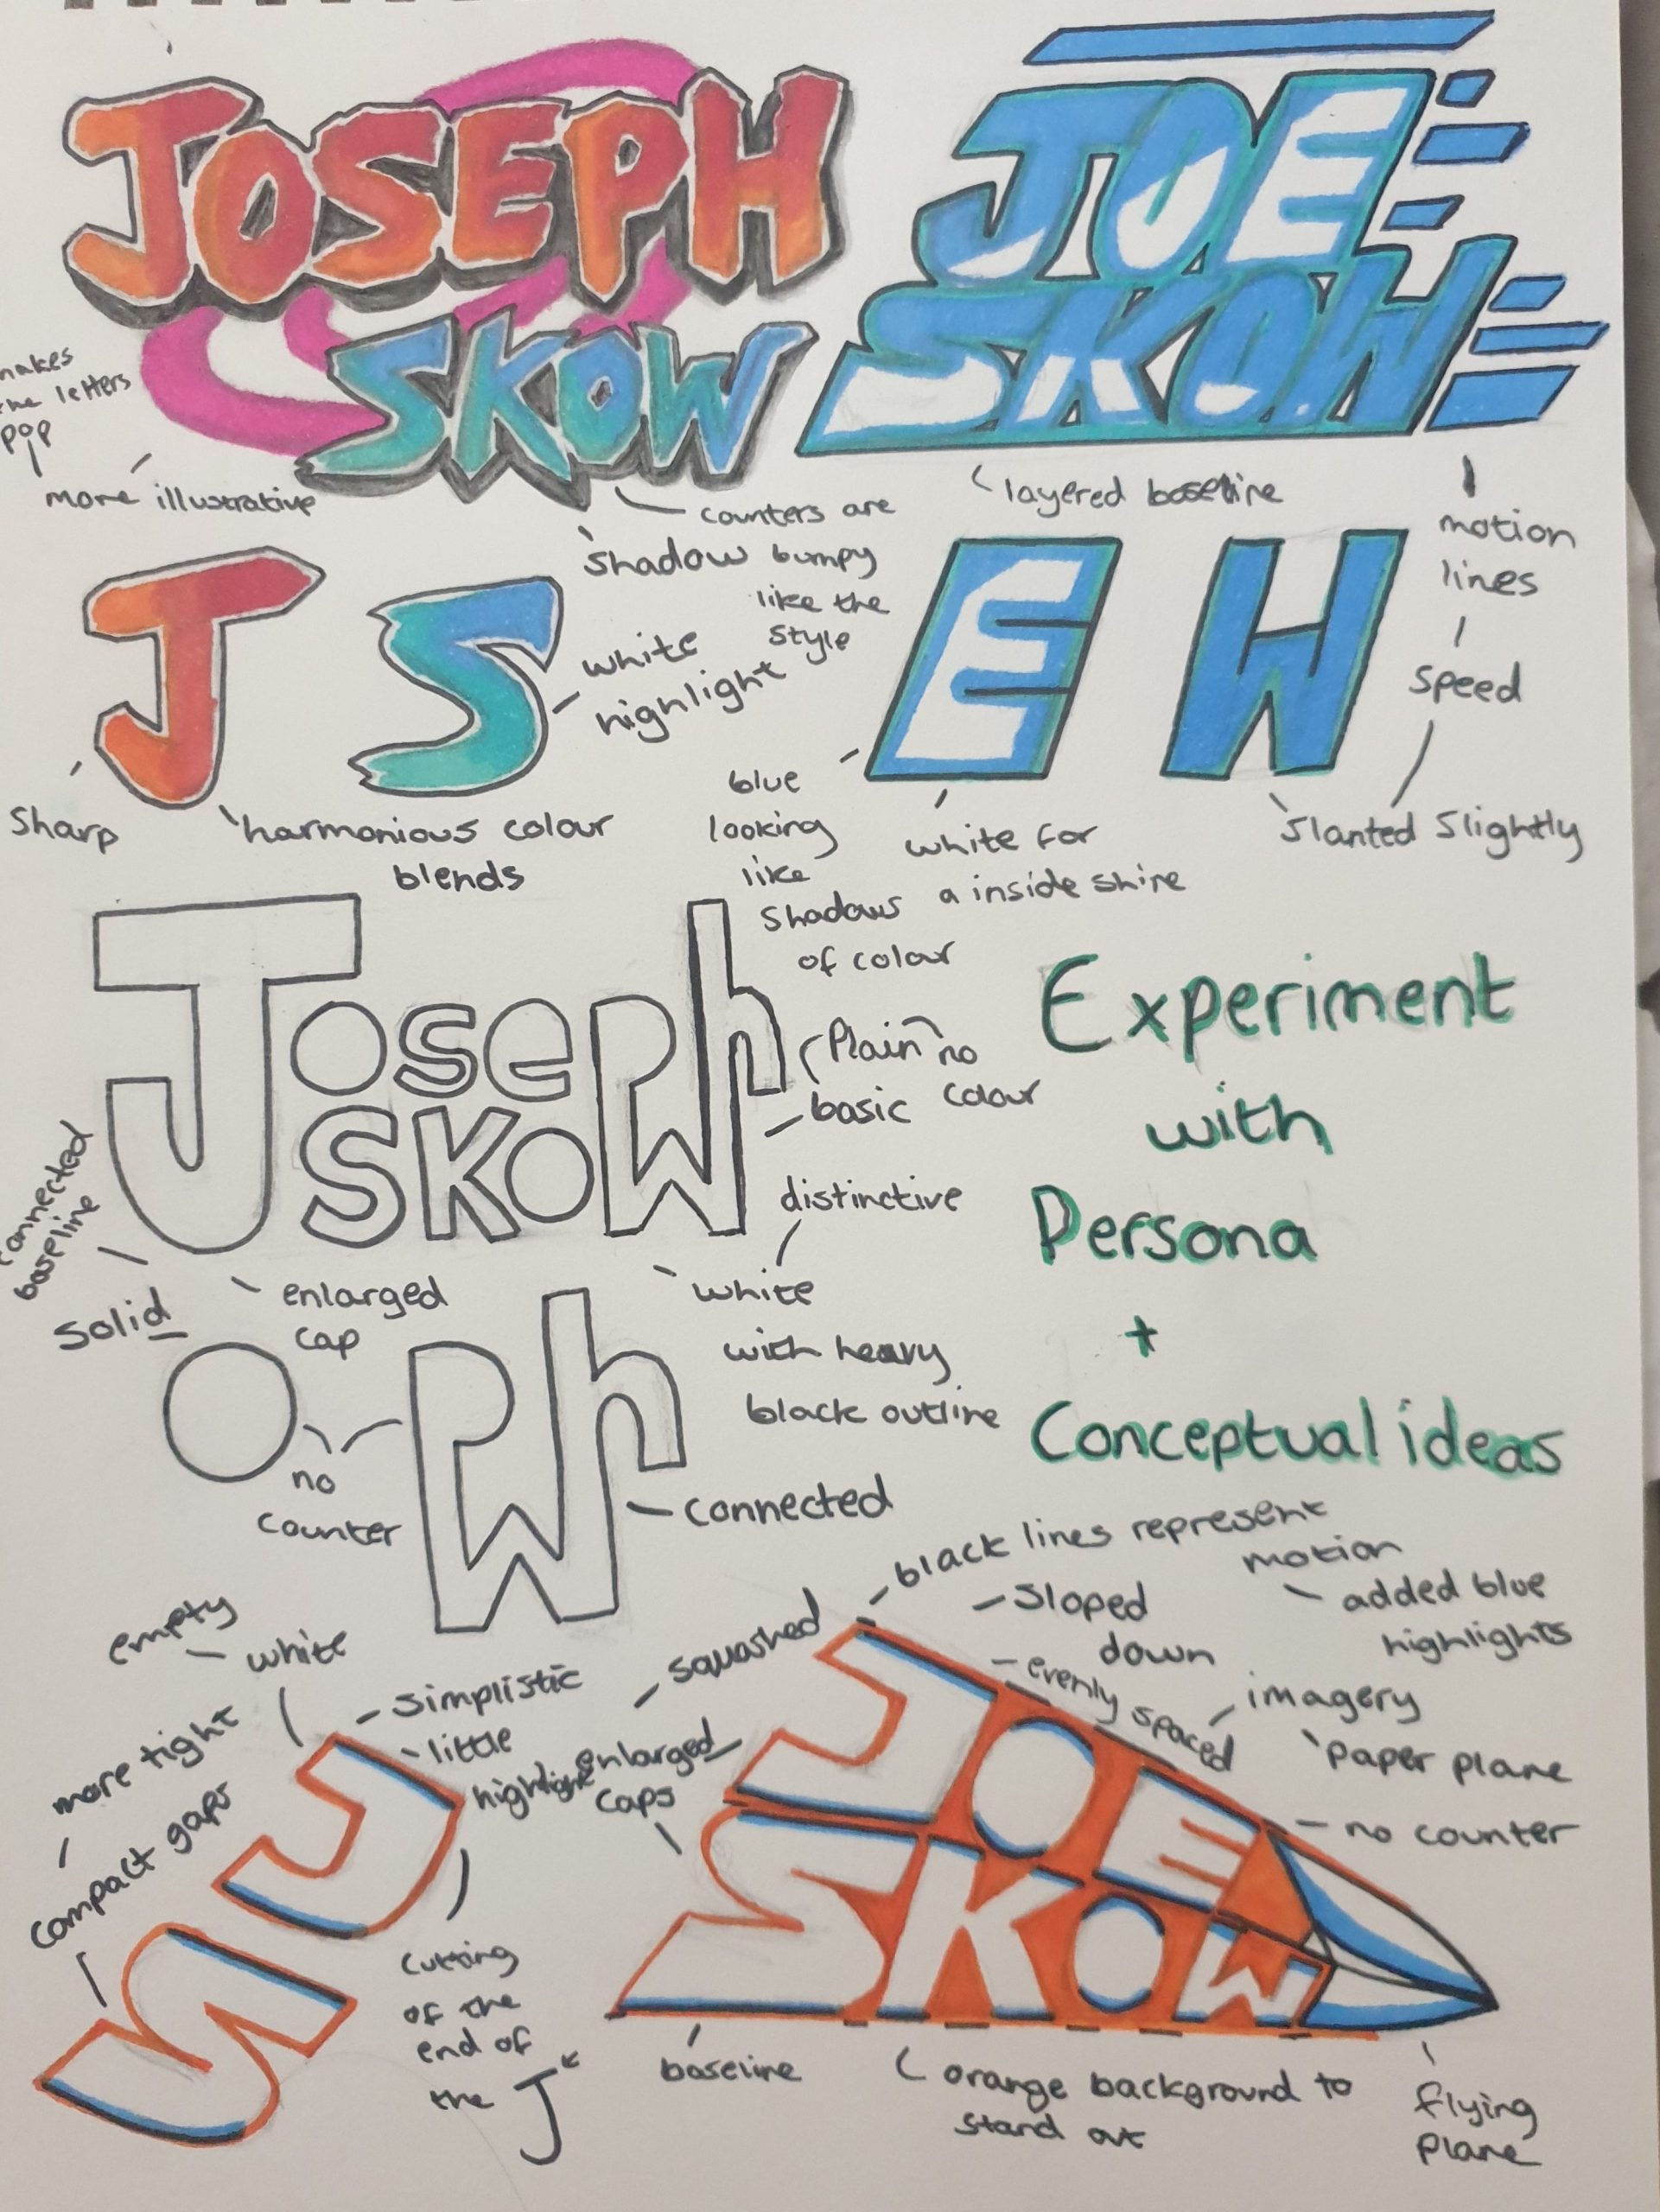 JOSEPH
SKOW
JOE
SKOW
makes
the letters
pop
more illustrative
counters are
bumpy
like the
style
shadow
layered baseline
motion
lines
speed
J S
E W
white
highlight
Sharp
harmonious colour
blends
blue
looking
like
shadows
of colour
white for
a inside shine
slanted slightly
Joseph
SKOW
Plain no
basic colour
connected
baseline
solid
enlarged
cap
distinctive
white
with heavy
black outline
Experiment
with
Persona
+
Conceptual ideas
O PWh
no
counter
connected
empty
white
simplistic
little
highlight
more tight
compact gaps
S J
cutting
of the
end of
the J
squashed
enlarged
caps
black lines represent
motion
sloped
down
added blue
highlights
evenly spaced
imagery
paper plane
no counter
JOE
SKOW
baseline
orange background to
stand out
flying
plane